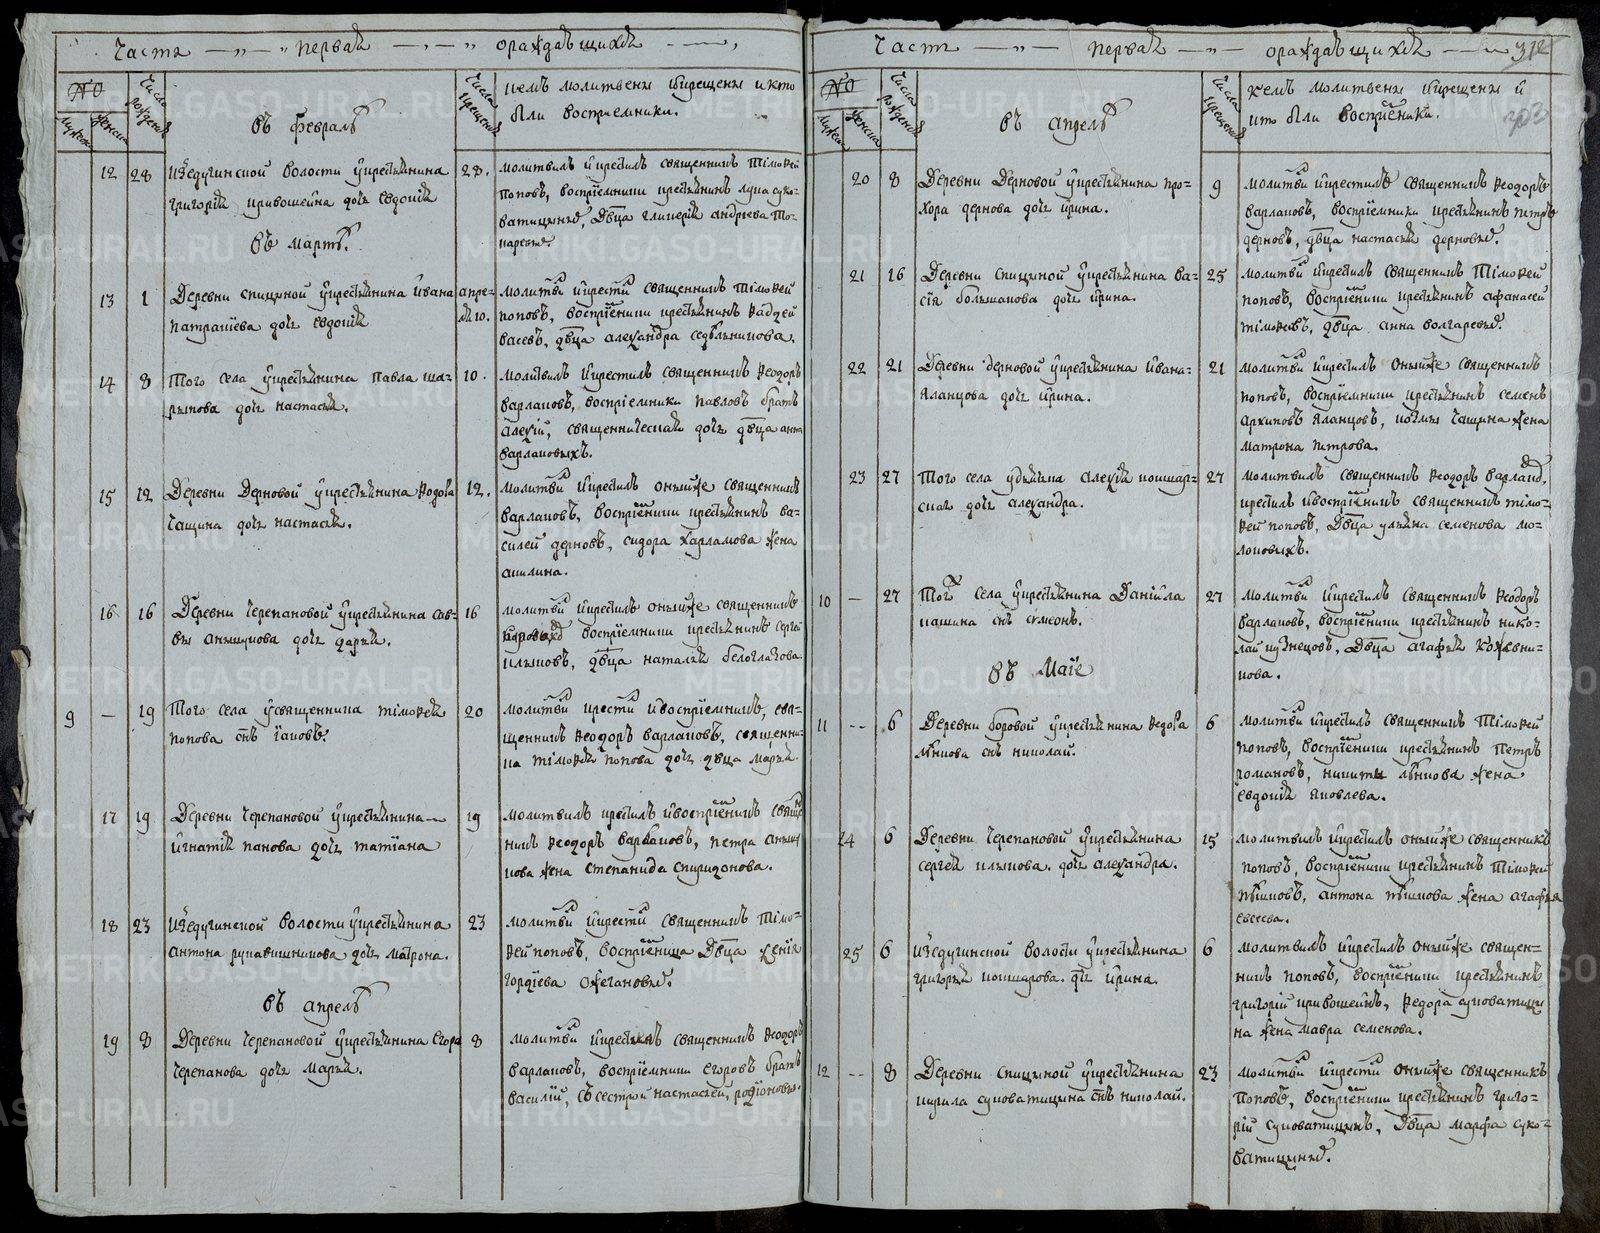 Часть — „ — „ первая — „ — „ ораждающихся — „
№
мужеск
женска
Числа рожденія
въ февралѣ
Числа крещенія
кемъ молитвены икрещены икто
были восприемники.
12 28 Изедугинской волости укрестьянина
григорія кривошеина дочь евдокія
28. молитвилъ икрестилъ священникъ тімоѳей
поповъ, восприемники крестьянинъ лука суко-
ватицынъ, двца гликерія андріева то-
каревыхъ.
въ мартѣ.
13 1 Деревни спицыной укрестьянина ивана
патракіева дочь евдокія
апре-
ля 10.
молитви икрести священникъ тімоѳей
поповъ, восприемники крестьянинъ ѳадѣей
васевъ, двца александра седѣльникова.
14 8 Того села укрестьянина павла ша-
рыпова дочь настасья.
10. молитвилъ икрестилъ священникъ ѳеодоръ
варлаковъ, восприемники павловъ братъ
алексій, священническая дочь двца анна
варлаковыхъ.
15 12 Деревни Дерновой укрестьянина ѳедора
Чащина дочь настасья.
12. молитви икрестилъ оныйже священникъ
варлаковъ, восприемники крестьянинъ ва-
силей дерновъ, сидора харламова жена
акилина.
16 16 Деревни черепановой укрестьянина сав-
вы аньшукова дочь дарья.
16 молитви икрестилъ оныйже священникъ
восприемники крестьянинъ сергей
илыковъ, двца наталья белоглазова.
9 — 19 Того села усвященника тімоѳея
попова снъ іаковъ.
20 молитви крести ивосприемникъ, свя-
щенникъ ѳеодоръ варлаковъ, священни-
ка тімоѳея попова дочь двца марья.
17 19 Деревни черепановой укрестьянина
игнатія панова дочь татіана
19 молитвилъ крестилъ ивосприемникъ свяще
никъ ѳеодоръ варлаковъ, петра
кова жена степанида спиридонова.
18 23 Изедугинской волости укрестьянина
антона рукавишникова дочь матрона.
23 молитви икрести священникъ тімо-
ѳей поповъ, восприемница двца ксенія
гордіева ожегановыхъ.
въ апрелѣ
19 8 Деревни черепановой укрестьянина егора
черепанова дочь марья.
8 молитви икрестилъ священникъ ѳеодоръ
варлаковъ, восприемники егоровъ братъ
василій, съ сестрой настасьей, родіоновы.
Часть — „ — первая — „ — ораждающихся — 312
№
мужеск
женска
Числа рожденія
въ апрелѣ
Числа крещенія
кемъ молитвены икрещены и
кто были восприемники.
303
20 8 Деревни Дерновой укрестьянина про-
хора дернова дочь ирина.
9 молитви икрестилъ священникъ ѳеодоръ
варлаковъ, восприемники крестьянинъ петръ
дерновъ, двца настасья дерновыхъ.
21 16 Деревни спицыной укрестьянина ва-
сія большакова дочь ирина.
25 молитви икрестилъ священникъ тімоѳей
поповъ, восприемники крестьянинъ афанасей
тімоѳеевъ, двца анна болгаревыхъ.
22 21 Деревни дерновой укрестьянина ивана
яланцова дочь ирина.
21 молитви икрестилъ оныйже священникъ
поповъ, восприемники крестьянинъ семенъ
архиповъ яланцовъ, козмы чащина жена
матрона петрова.
23 27 Того села удьякона алексія кошкар-
скаг дочь александра.
27 молитвилъ священникъ ѳеодоръ варлак,
крестилъ ивосприемникъ священникъ тімо-
ѳей поповъ, двца ульяна семенова по-
повыхъ.
10 — 27 Тог села укрестьянина даніила
кашина снъ сумеонъ.
27 молитви икрестилъ священникъ ѳеодоръ
варлаковъ, восприемники крестьянинъ нико-
лай кузнецовъ, двца агафья кожевни-
кова.
въ маіе
11 -- 6 Деревни боровой укрестьянина ѳедора
лѣнкова снъ николай.
6 молитви икрестилъ священникъ тімоѳей
поповъ, восприемники крестьянинъ петръ
романовъ, никиты лѣнкова жена
евдокія яковлева.
24 6 Деревни черепановой укрестьянина
сергея илыкова. дочь александра.
15 молитвилъ икрестилъ оныйже священникъ
поповъ, восприемники крестьянинъ тімоѳей
пѣшковъ, антона пѣшкова жена агафья
евсеева.
25 6 Изедугинской волости укрестьянина
григорья кошкарова. дч ирина.
6 молитвилъ икрестилъ оныйже священ-
никъ поповъ, восприемники крестьянинъ
григорій кривошеинъ, ѳедора суковатицы
на жена мавра семенова.
12 -- 8 Деревни спицыной укрестьянина
кирила суковатицына снъ николай.
23 молитви икрести оныйже священникъ
поповъ, восприемники крестьянинъ григо-
рій суковатицынъ, двца марфа суко-
ватицыныхъ.
METRIKI.GASO-URAL.RU